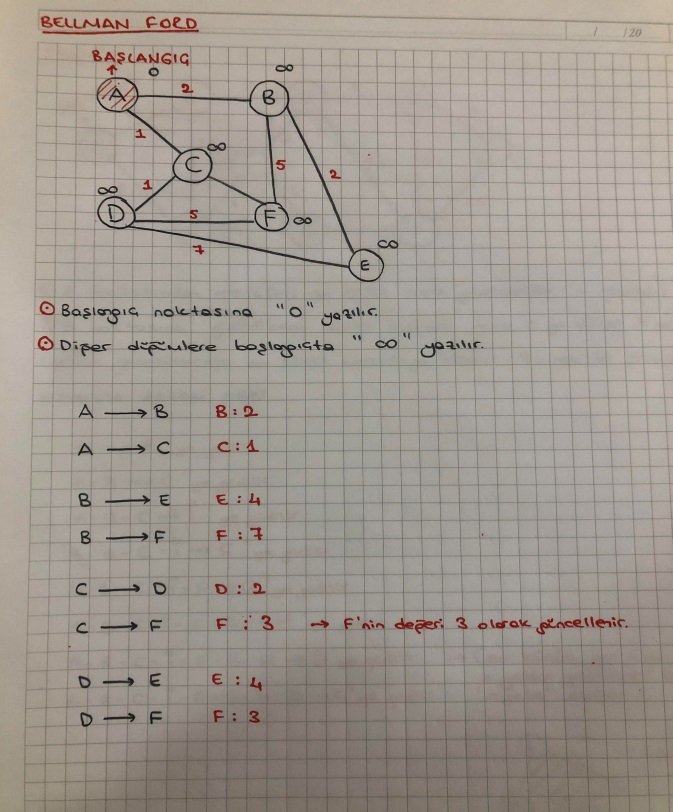 BELLMAN FORD
/ /20
BAŞLANGIÇ
0
∞
A
2
B
1
C
∞
5
2
∞
1
D
5
F
∞
∞
7
E
Başlangıç noktasına "0" yazılır.
Diğer düğümlere başlangıçta "∞" yazılır.
A → B B : 2
A → C C : 1
B → E E : 4
B → F F : 7
C → D D : 2
C → F F : 3 → F'nin değeri 3 olarak güncellenir.
D → E E : 4
D → F F : 3